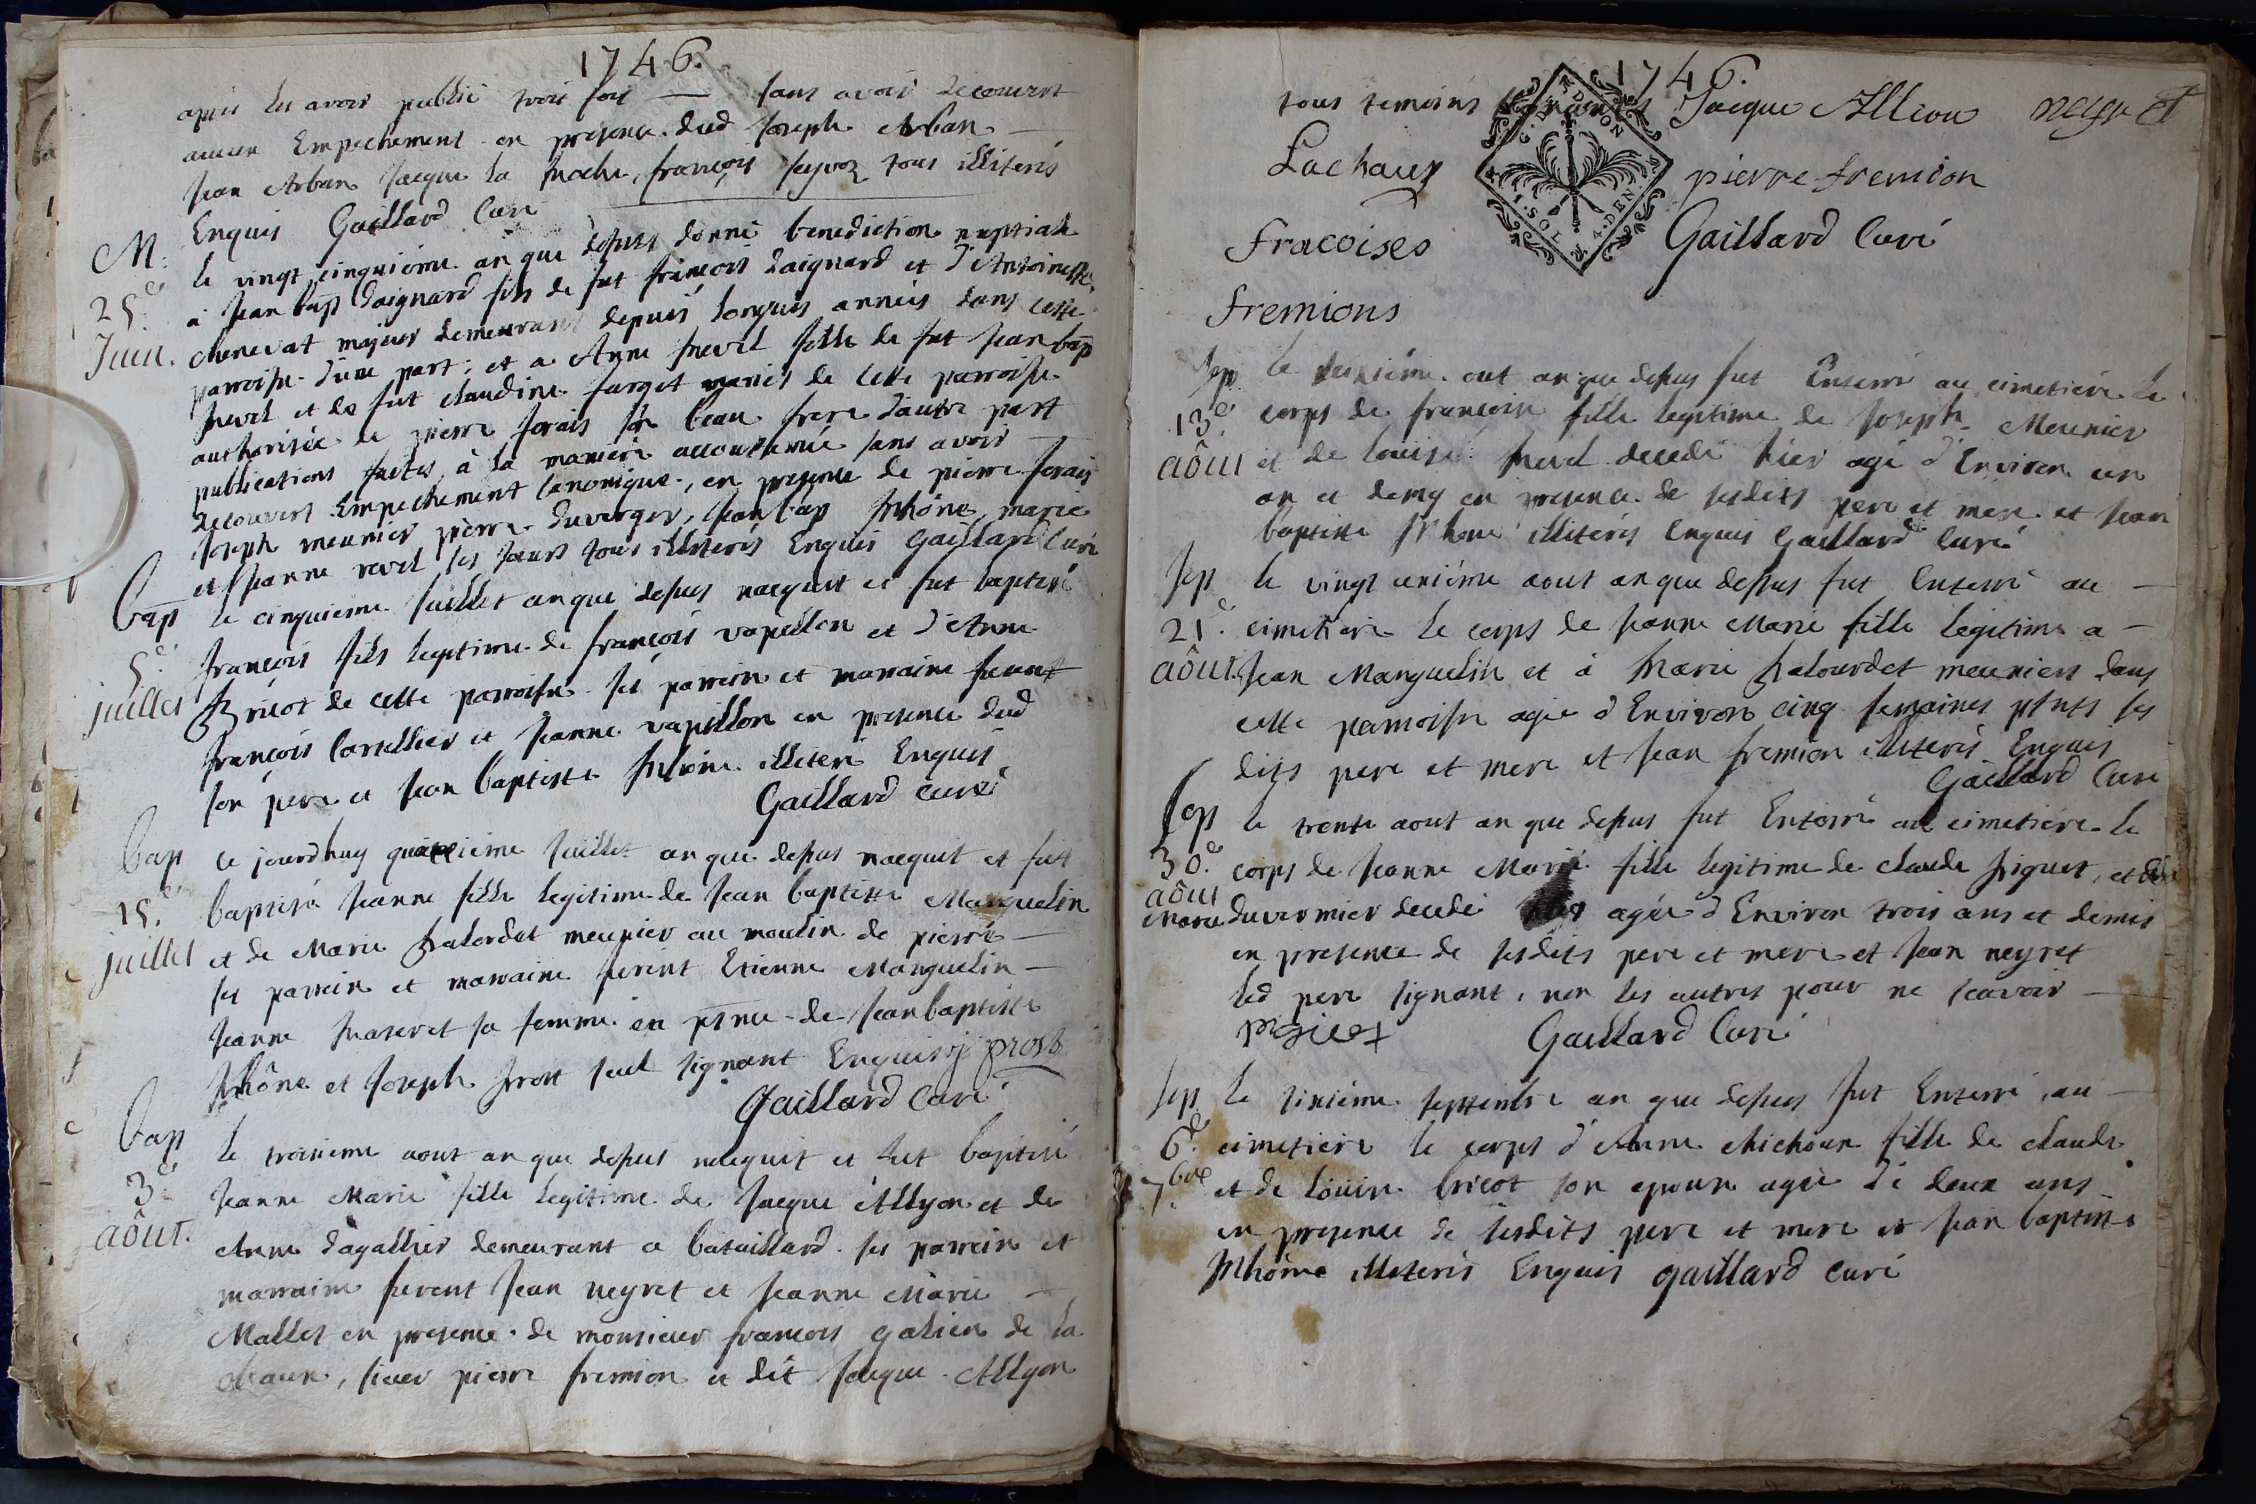 1746.
apres les avoir publié trois fois — sans avoir decouvert
aucun Empechement en presence dud Joseph Arban —
Jean Arban Jacque la Roche, françois tous illiterés
Enquis Gaillard Curé
M: le vingt cinquième an que dessus donné benediction nuptiale
25e. à Jean bap daignard fils de fut françois daignard et d'Antoinette
Juin. chenevat majeur demeurant depuis longues années dans cette
parroisse d'une part; et a Anne revel fille de fut Jean bap
revel et de fut claudine farget mariés de cette parroisse
authorisée de pierre forais son beau frere d'autre part
publications faites à la maniere accoutumée sans avoir
decouvert Empechement canonique, en presence de pierre forais
Joseph meunier pierre duverger, Jean bap Rhône, marie
et Jeanne revel ses sœurs tous illiterés Enquis Gaillard Curé
bap le cinquieme Juillet an que dessus nacquit et fut baptisé
5e. françois fils legitime de françois vapillon et d'Anne
juillet Bricot de cette parroisse ses parrein et marraine furent
françois Cortellier et Jeanne vapillon en presence dud
son pere et Jean baptiste Rhône illiteré Enquis
Gaillard curé
bap ce jourdhuy quinzieme Juillet an que dessus nacquit et fut
15e. baptisé Jeanne fille legitime de Jean baptiste Manguelin
juillet et de Marie Balordet meunier au moulin de pierre —
ses parrein et marraine furent Etienne Manguelin —
Jeanne sa femme en pñce de Jean baptiste
Rhône et Joseph Prost seul signant Enquis j prost
Gaillard Curé
bap le troisieme aout an que dessus nacquit et fut baptisé
3e Jeanne Marie fille legitime de Jacque Allyon et de
aôut. Anne dagallier demeurant a bataillard ses parrein et
marraine furent Jean neyret et Jeanne Marie —
Mallet en presence de monsieur francois galien de la
chaux, sieur pierre fremion et dit Jacque Allyon
1746.
tous temoins Jacque Allion neyret
Lachaux pierre fremion
G. D. 4. DEN
fracoises Gaillard Curé
fremions
Sep. le treiziéme out an que dessus fut Enterré au cimetiére le
13e. corps de francoise fille legitime de Joseph Meunier
aôut et de louise revel decedé hier agé d'Environ un
an et demy en presence de sesdits pere et mere et Jean
baptiste Rhone illiterés Enquis Gaillard Curé
Sep le vingt uniéme aout an que dessus fut Enterré au —
21e. cimetiére le corps de Jeanne Marie fille legitime a —
aôut. Jean Manguelin et à Marie Balourdet meuniers dans
cette parroisse agée d'Environ cinq semaines pñts ses
dits pere et mere et Jean fremion illiterés Enquis
Gaillard Curé
Sep le trente aout an que dessus fut Enterré au cimetiére le
30e. corps de Jeanne Marie fille legitime de claude piguet, et de
aôut
Marie duvernier decedé hier agée d'Environ trois ans et demis
en presence de sesdits pere et mere et Jean neyret
led pere signant, non les autres pour ne scavoir —
piguet Gaillard Curé
Sep le sixiéme septembre an que dessus fut Enterré, au —
6e. cimetiere le corps d'Anne Michoux fille de claude
7bre et de louise bricot son epouse agée de deux ans
en presence de sesdits pere et mere et Jean baptiste
Rhône illiterés Enquis gaillard curé